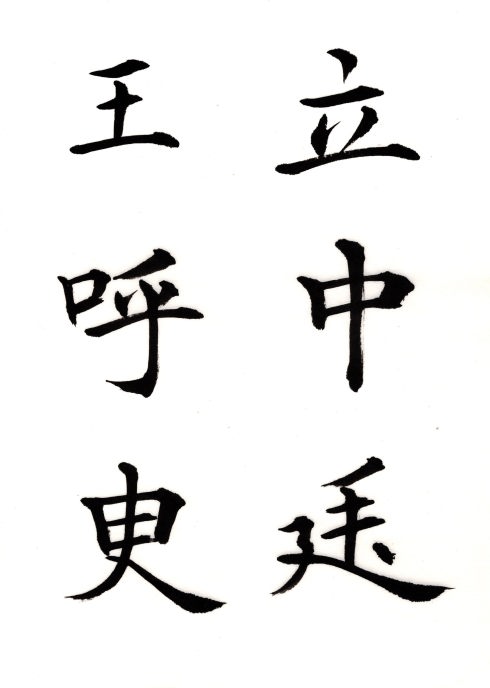 立中廷
王呼史